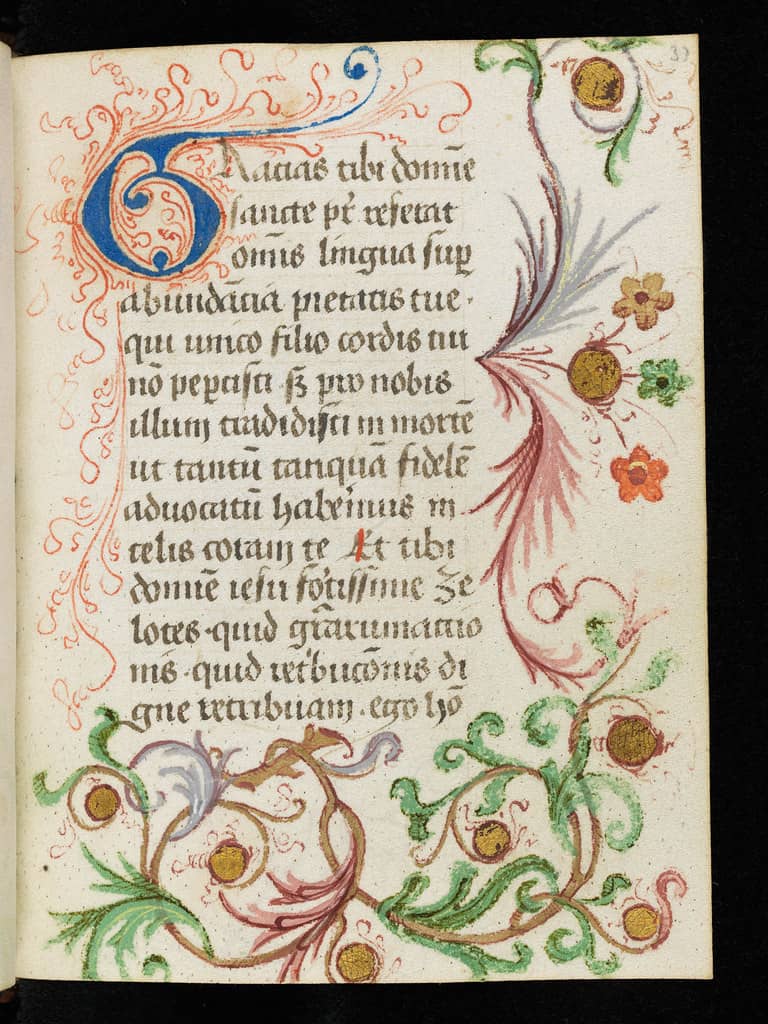 39
GRacias tibi domīe
sancte pr̄ referat
om̄is lingua sup̱
abundācia pietatis tue·
qui unico filio cordis tui
nō pep̱cisti · sꝫ pro nobis
illum tradidisti in mortē
ut tantū tanquā fidelē
advocatū haberimus in
celis coram te Et tibi
domīe iesu fortissime Ze
lotes · quid gr̄arumactio
nis · quid ret'bucōnis di
gne retribuam · ego hō